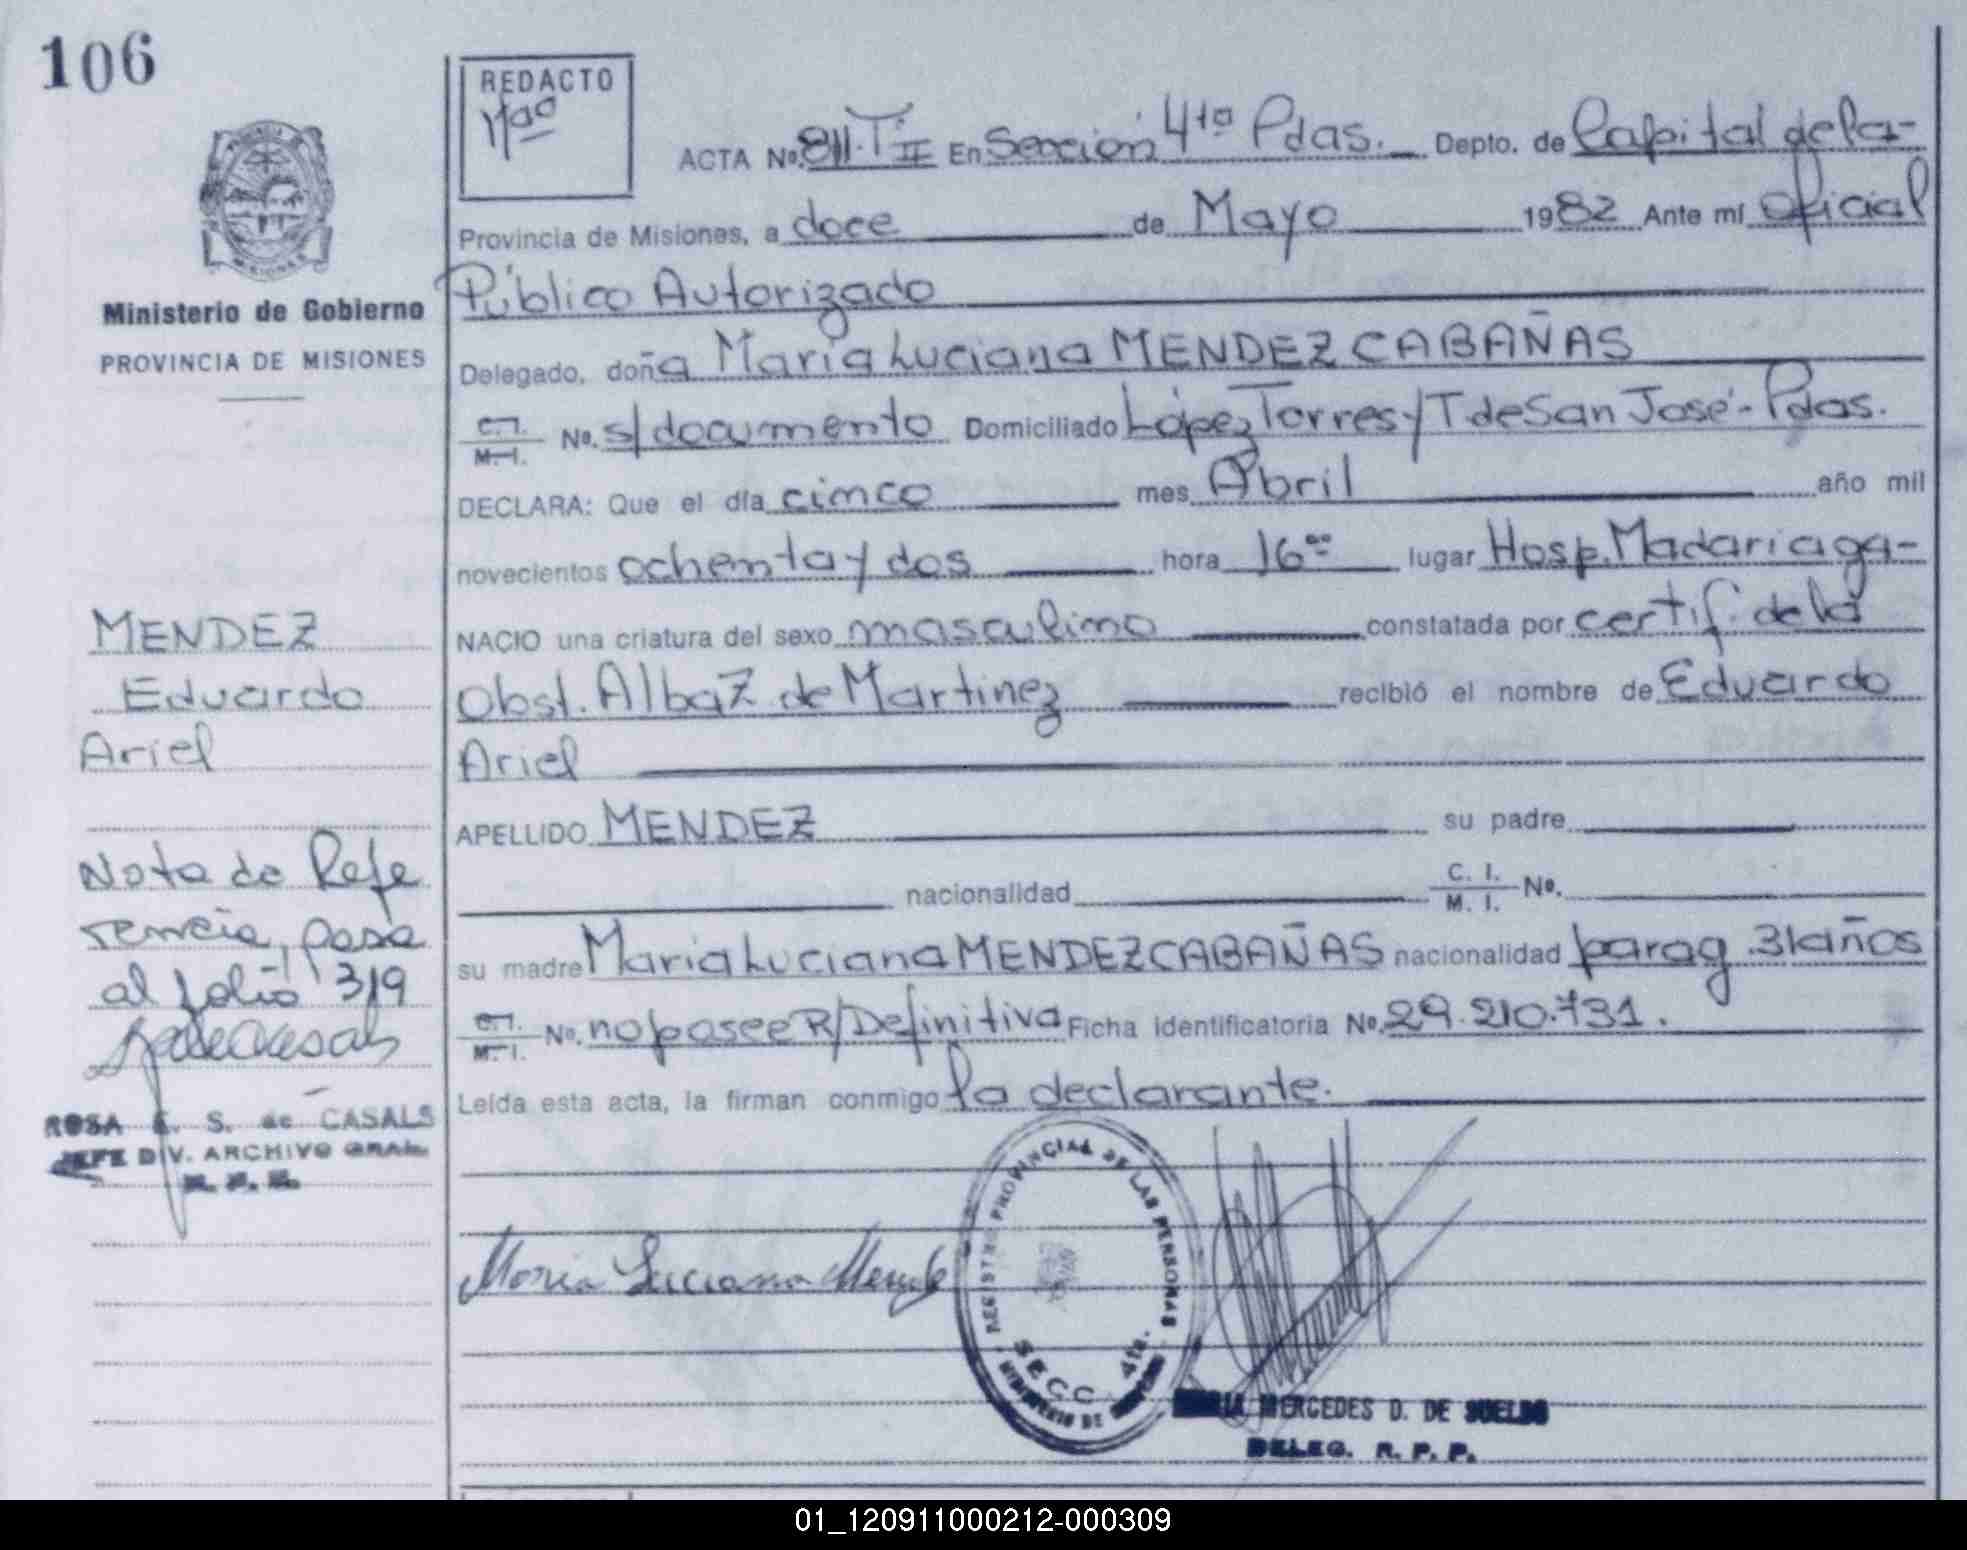 106
REDACTO
ACTA No. 811. T. II En Sección 4ta Pdas. Depto. de Capital de la-
Provincia de Misiones, a doce de Mayo 1982 Ante mí Oficial
Público Autorizado
Ministerio de Gobierno
PROVINCIA DE MISIONES
MISIONES
Delegado, doña María Luciana MENDEZ CABAÑAS
C.I. M.I. No. s/documento Domiciliado López Torres y T de San José - Pdas.
DECLARA: Que el día cinco mes Abril año mil
novecientos ochenta y dos hora 16°° lugar Hosp. Madariaga-
NACIO una criatura del sexo masculino constatada por certif. de la
Obst. Alba Z. de Martinez recibió el nombre de Eduardo
Ariel
APELLIDO MENDEZ su padre
nacionalidad C. I. M. I. No.
su madre María Luciana MENDEZ CABAÑAS nacionalidad parag. 31 años
C.I. M.I. No. no posee R/Definitiva Ficha identificatoria No. 29.210.731.
Leída esta acta, la firman conmigo la declarante.
MENDEZ
Eduardo
Ariel
Nota de Refe
rencia, pasa
al folio 319
ROSA E. S. de CASALS
JEFE DIV. ARCHIVO GRAL.
R. P. P.
Maria Luciana Mendez
REGISTRO PROVINCIAL DE LAS PERSONAS
SECC. 4ta.
MINISTERIO DE GOBIERNO
MARIA MERCEDES D. DE SUELDO
DELEG. R. P. P.
01_120911000212-000309